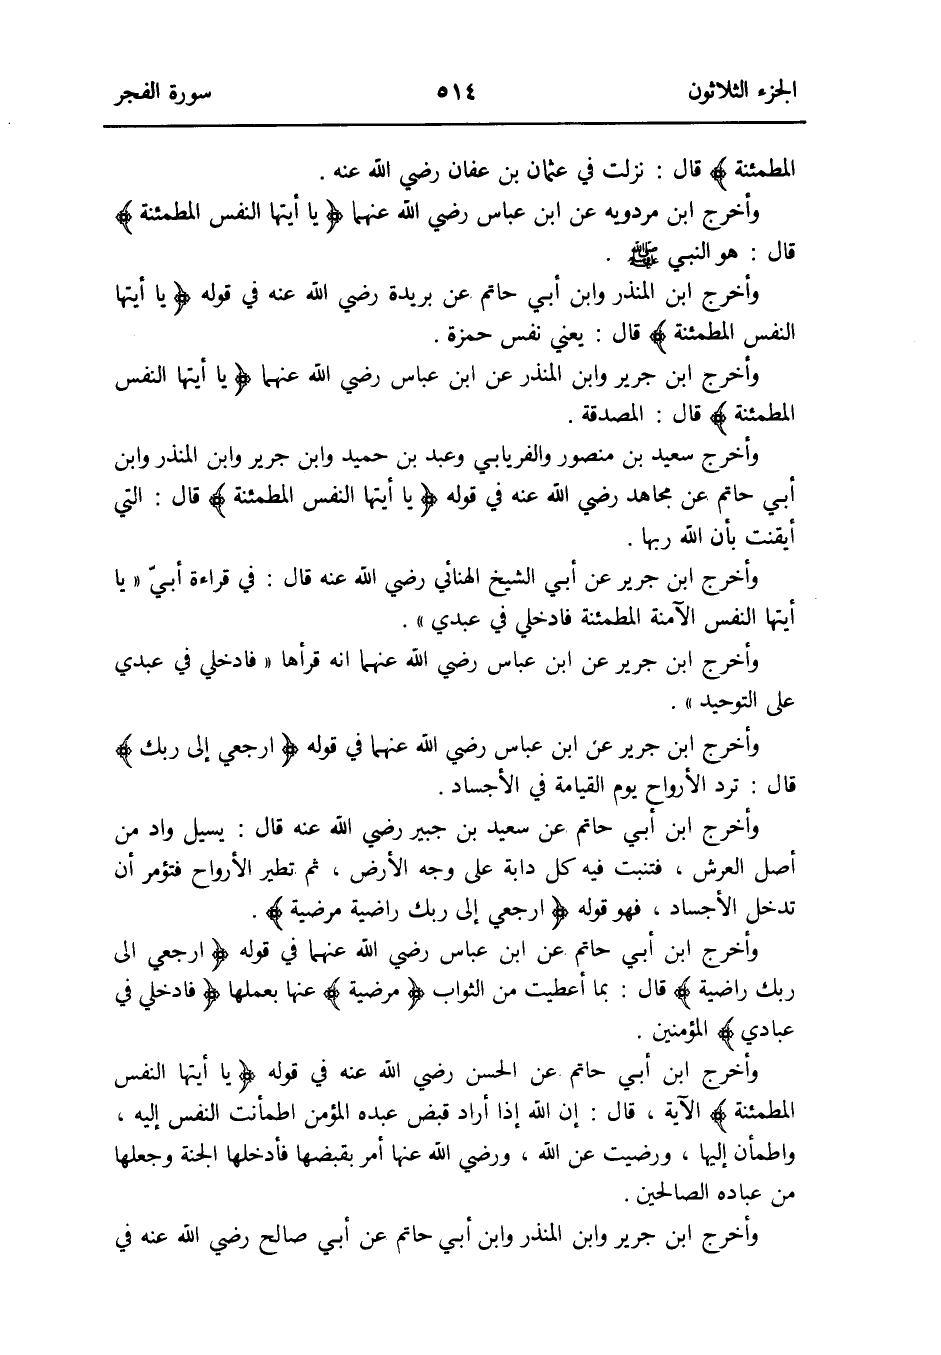 الجزء الثلاثون ٥١٤ سورة الفجر
المطمئنة ﴾ قال : نزلت في عثمان بن عفان رضي الله عنه .
وأخرج ابن مردويه عن ابن عباس رضي الله عنهما ﴿ يا أيتها النفس المطمئنة ﴾
قال : هو النبي ﷺ .
وأخرج ابن المنذر وابن أبي حاتم عن بريدة رضي الله عنه في قوله ﴿ يا أيتها
النفس المطمئنة ﴾ قال : يعني نفس حمزة .
وأخرج ابن جرير وابن المنذر عن ابن عباس رضي الله عنهما ﴿ يا أيتها النفس
المطمئنة ﴾ قال : المصدقة .
وأخرج سعيد بن منصور والفريابي وعبد بن حميد وابن جرير وابن المنذر وابن
أبي حاتم عن مجاهد رضي الله عنه في قوله ﴿ يا أيتها النفس المطمئنة ﴾ قال : التي
أيقنت بأن الله ربها .
وأخرج ابن جرير عن أبي الشيخ الهنائي رضي الله عنه قال : في قراءة أبيّ « يا
أيتها النفس الآمنة المطمئنة فادخلي في عبدي » .
وأخرج ابن جرير عن ابن عباس رضي الله عنهما انه قرأها « فادخلي في عبدي
على التوحيد » .
وأخرج ابن جرير عن ابن عباس رضي الله عنهما في قوله ﴿ ارجعي إلى ربك ﴾
قال : ترد الأرواح يوم القيامة في الأجساد .
وأخرج ابن أبي حاتم عن سعيد بن جبير رضي الله عنه قال : يسيل واد من
أصل العرش ، فتنبت فيه كل دابة على وجه الأرض ، ثم تطير الأرواح فتؤمر أن
تدخل الأجساد ، فهو قوله ﴿ ارجعي إلى ربك راضية مرضية ﴾ .
وأخرج ابن أبي حاتم عن ابن عباس رضي الله عنهما في قوله ﴿ ارجعي الى
ربك راضية ﴾ قال : بما أعطيت من الثواب ﴿ مرضية ﴾ عنها بعملها ﴿ فادخلي في
عبادي ﴾ المؤمنين .
وأخرج ابن أبي حاتم عن الحسن رضي الله عنه في قوله ﴿ يا أيتها النفس
المطمئنة ﴾ الآية ، قال : إن الله إذا أراد قبض عبده المؤمن اطمأنت النفس إليه ،
واطمأن إليها ، ورضيت عن الله ، ورضي الله عنها أمر بقبضها فأدخلها الجنة وجعلها
من عباده الصالحين .
وأخرج ابن جرير وابن المنذر وابن أبي حاتم عن أبي صالح رضي الله عنه في